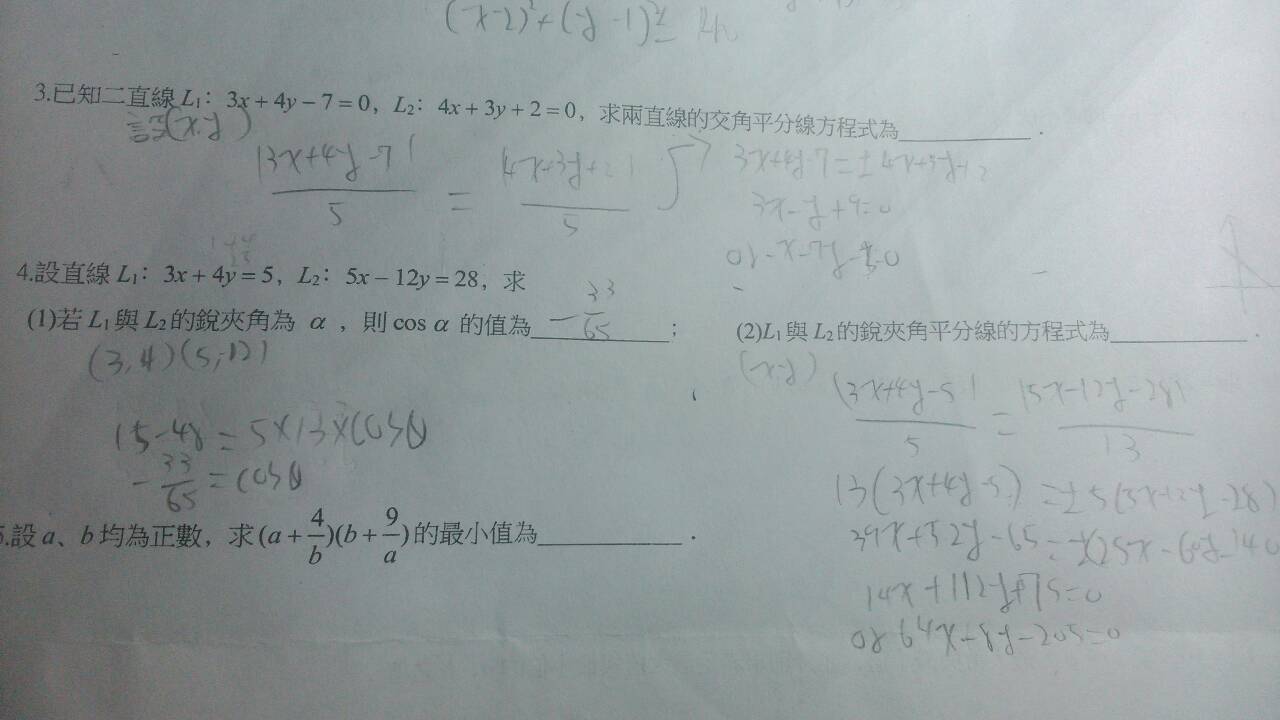 (x-2)²+(y-1)²=
3.已知二直線 L₁：3x+4y−7=0，L₂：4x+3y+2=0，求兩直線的交角平分線方程式為__________．
設(x,y)
|3x+4y-7|/5 = |4x+3y+2|/5
3x+4y-7=±4x+3y+2
x-y+9=0
or
4.設直線 L₁：3x+4y=5，L₂：5x−12y=28，求
(1)若 L₁與 L₂的銳夾角為 α，則 cos α 的值為__________；
-33/65
(3,4)(5,-12)
15-48=5×13×cosθ
-33/65=cosθ
(2)L₁與 L₂的銳夾角平分線的方程式為__________．
(x,y)
|3x+4y-5|/5 = |5x-12y-28|/13
13(3x+4y-5)=±5(5x-12y-28)
39x+52y-65=±(25x-60y-140
14x+112y+75=0
or 64x-8y-205=0
5.設 a、b 均為正數，求(a+4/b)(b+9/a)的最小值為__________．